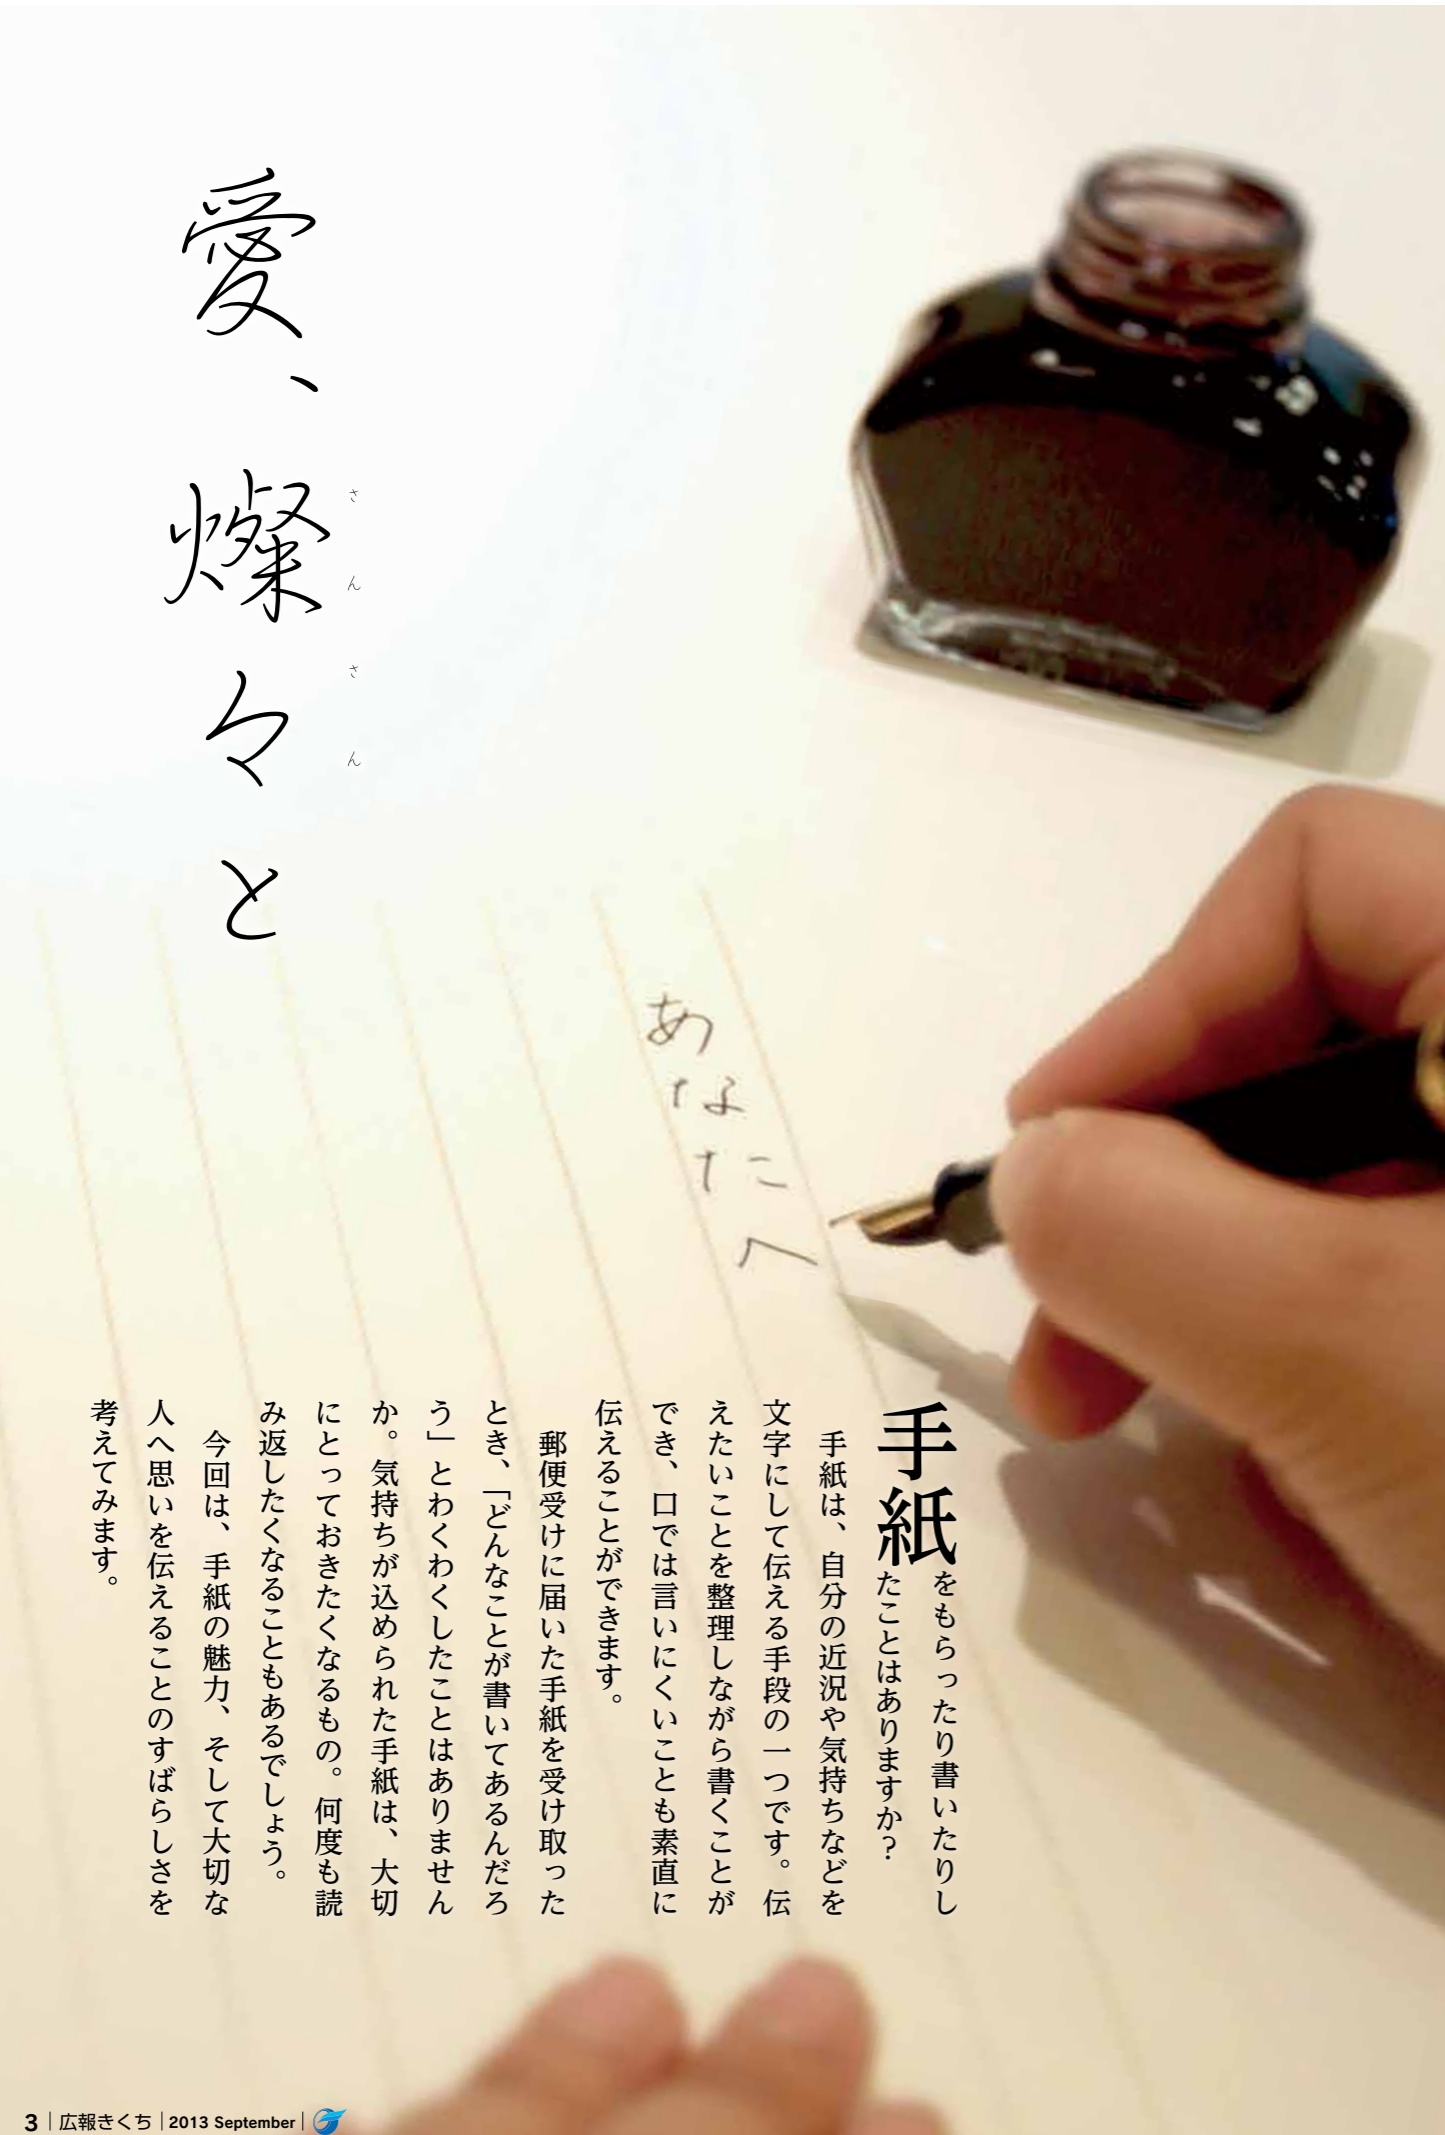 愛、燦々と
さんさん
あなたへ
手紙をもらったり書いたりし
たことはありますか?
　手紙は、自分の近況や気持ちなどを
文字にして伝える手段の一つです。伝
えたいことを整理しながら書くことが
でき、口では言いにくいことも素直に
伝えることができます。
　郵便受けに届いた手紙を受け取った
とき、「どんなことが書いてあるんだろ
う」とわくわくしたことはありません
か。気持ちが込められた手紙は、大切
にとっておきたくなるもの。何度も読
み返したくなることもあるでしょう。
　今回は、手紙の魅力、そして大切な
人へ思いを伝えることのすばらしさを
考えてみます。
3｜広報きくち｜2013 September｜